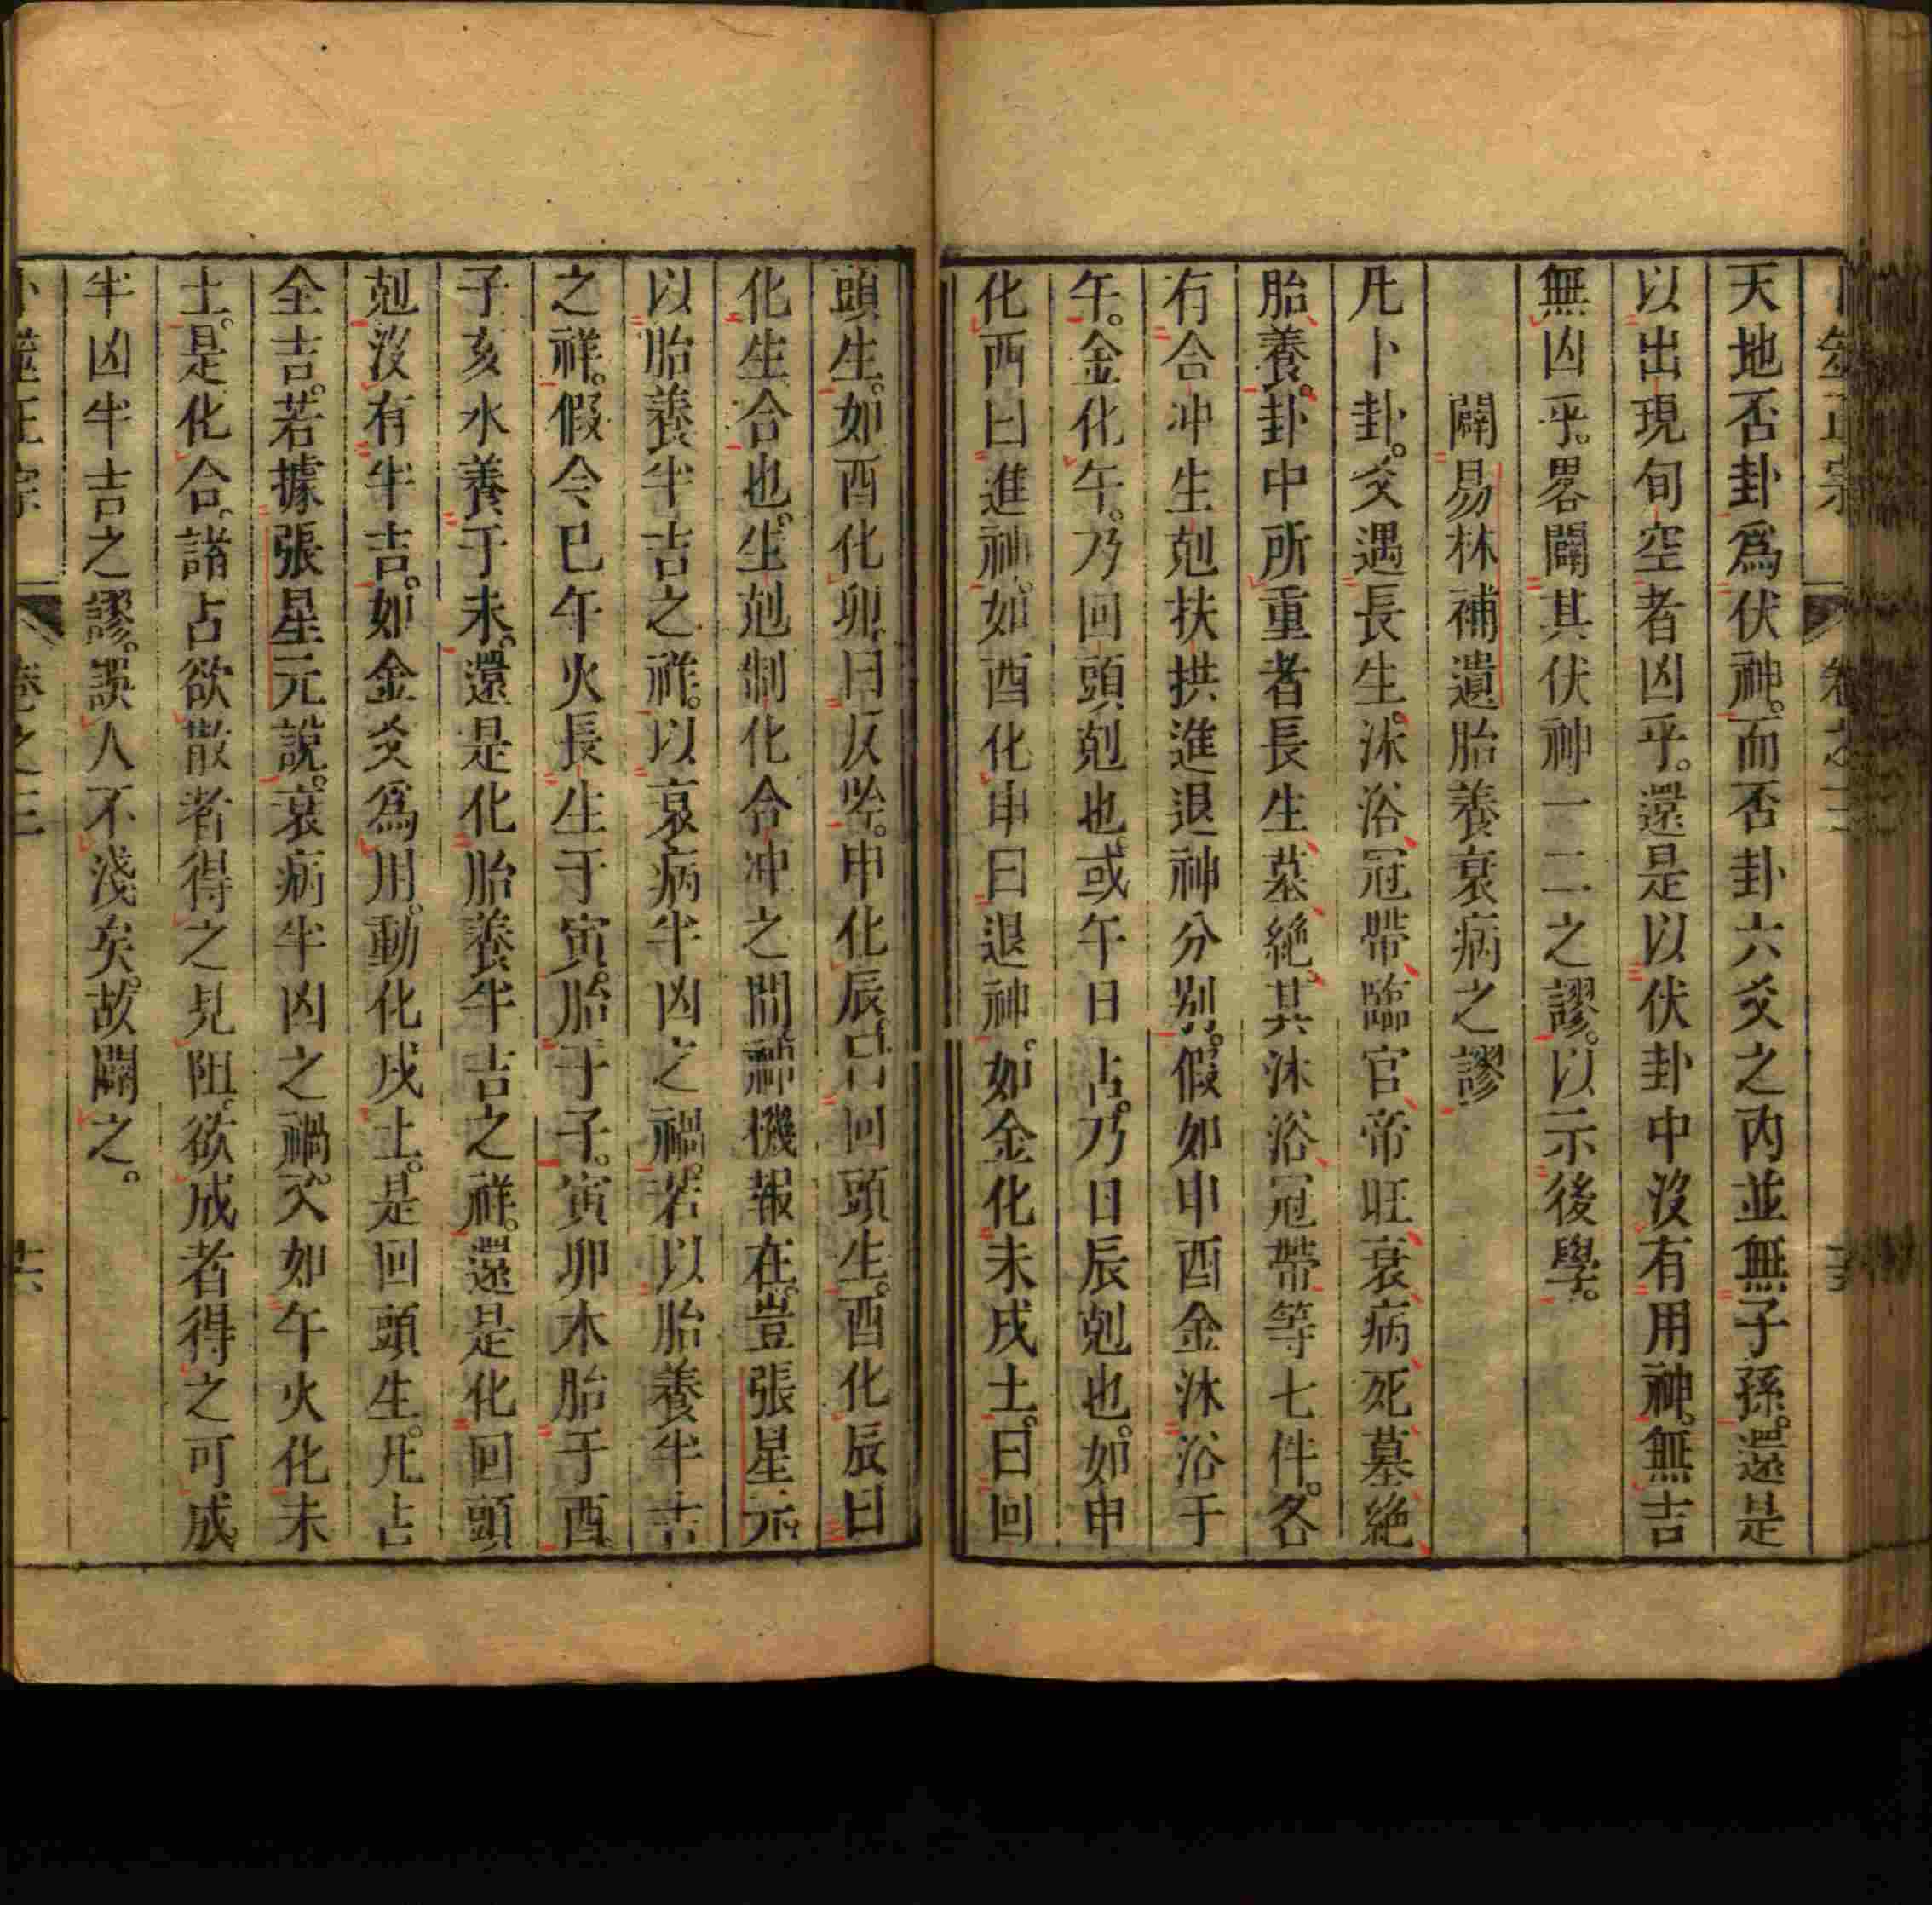 天地否卦爲伏神。而否卦六爻之內並無子孫。還是
以出現旬空者凶乎。還是以伏卦中沒有用神。無吉
無凶乎。畧闢其伏神一二之謬。以示後學。
闢易林補遺胎養衰病之謬
凡卜卦。爻遇長生。沐浴、冠帶、臨官、帝旺、衰、病、死、墓、絶、
胎、養。卦中所重者長生、墓、絶。其沐浴、冠帶、等七件。各
有合冲生剋扶拱進退神分別。假如申酉金沐浴于
午。金化午。乃回頭剋也。或午日占。乃日辰剋也。如申
化酉曰進神。如酉化申曰退神。如金化未戌土。曰回
頭生。如酉化卯。曰反吟。申化辰。曰回頭生。酉化辰曰
化生合也。生剋制化合冲之間。神機報在。豈張星元
以胎養半吉之祥。以衰病半凶之禍。若以胎養半吉
之祥。假令巳午火長生于寅。胎于子。寅卯木胎于酉
子亥水養于未。還是化胎養半吉之祥。還是化回頭
剋沒有半吉。如金爻爲用。動化戌土。是回頭生。凡占
全吉。若據張星元說。衰病半凶之禍。又如午火化未
土。是化合。諸占欲散者得之見阻。欲成者得之可成
半凶半吉之謬。誤人不淺矣。故闢之。
卜筮正宗 卷之三